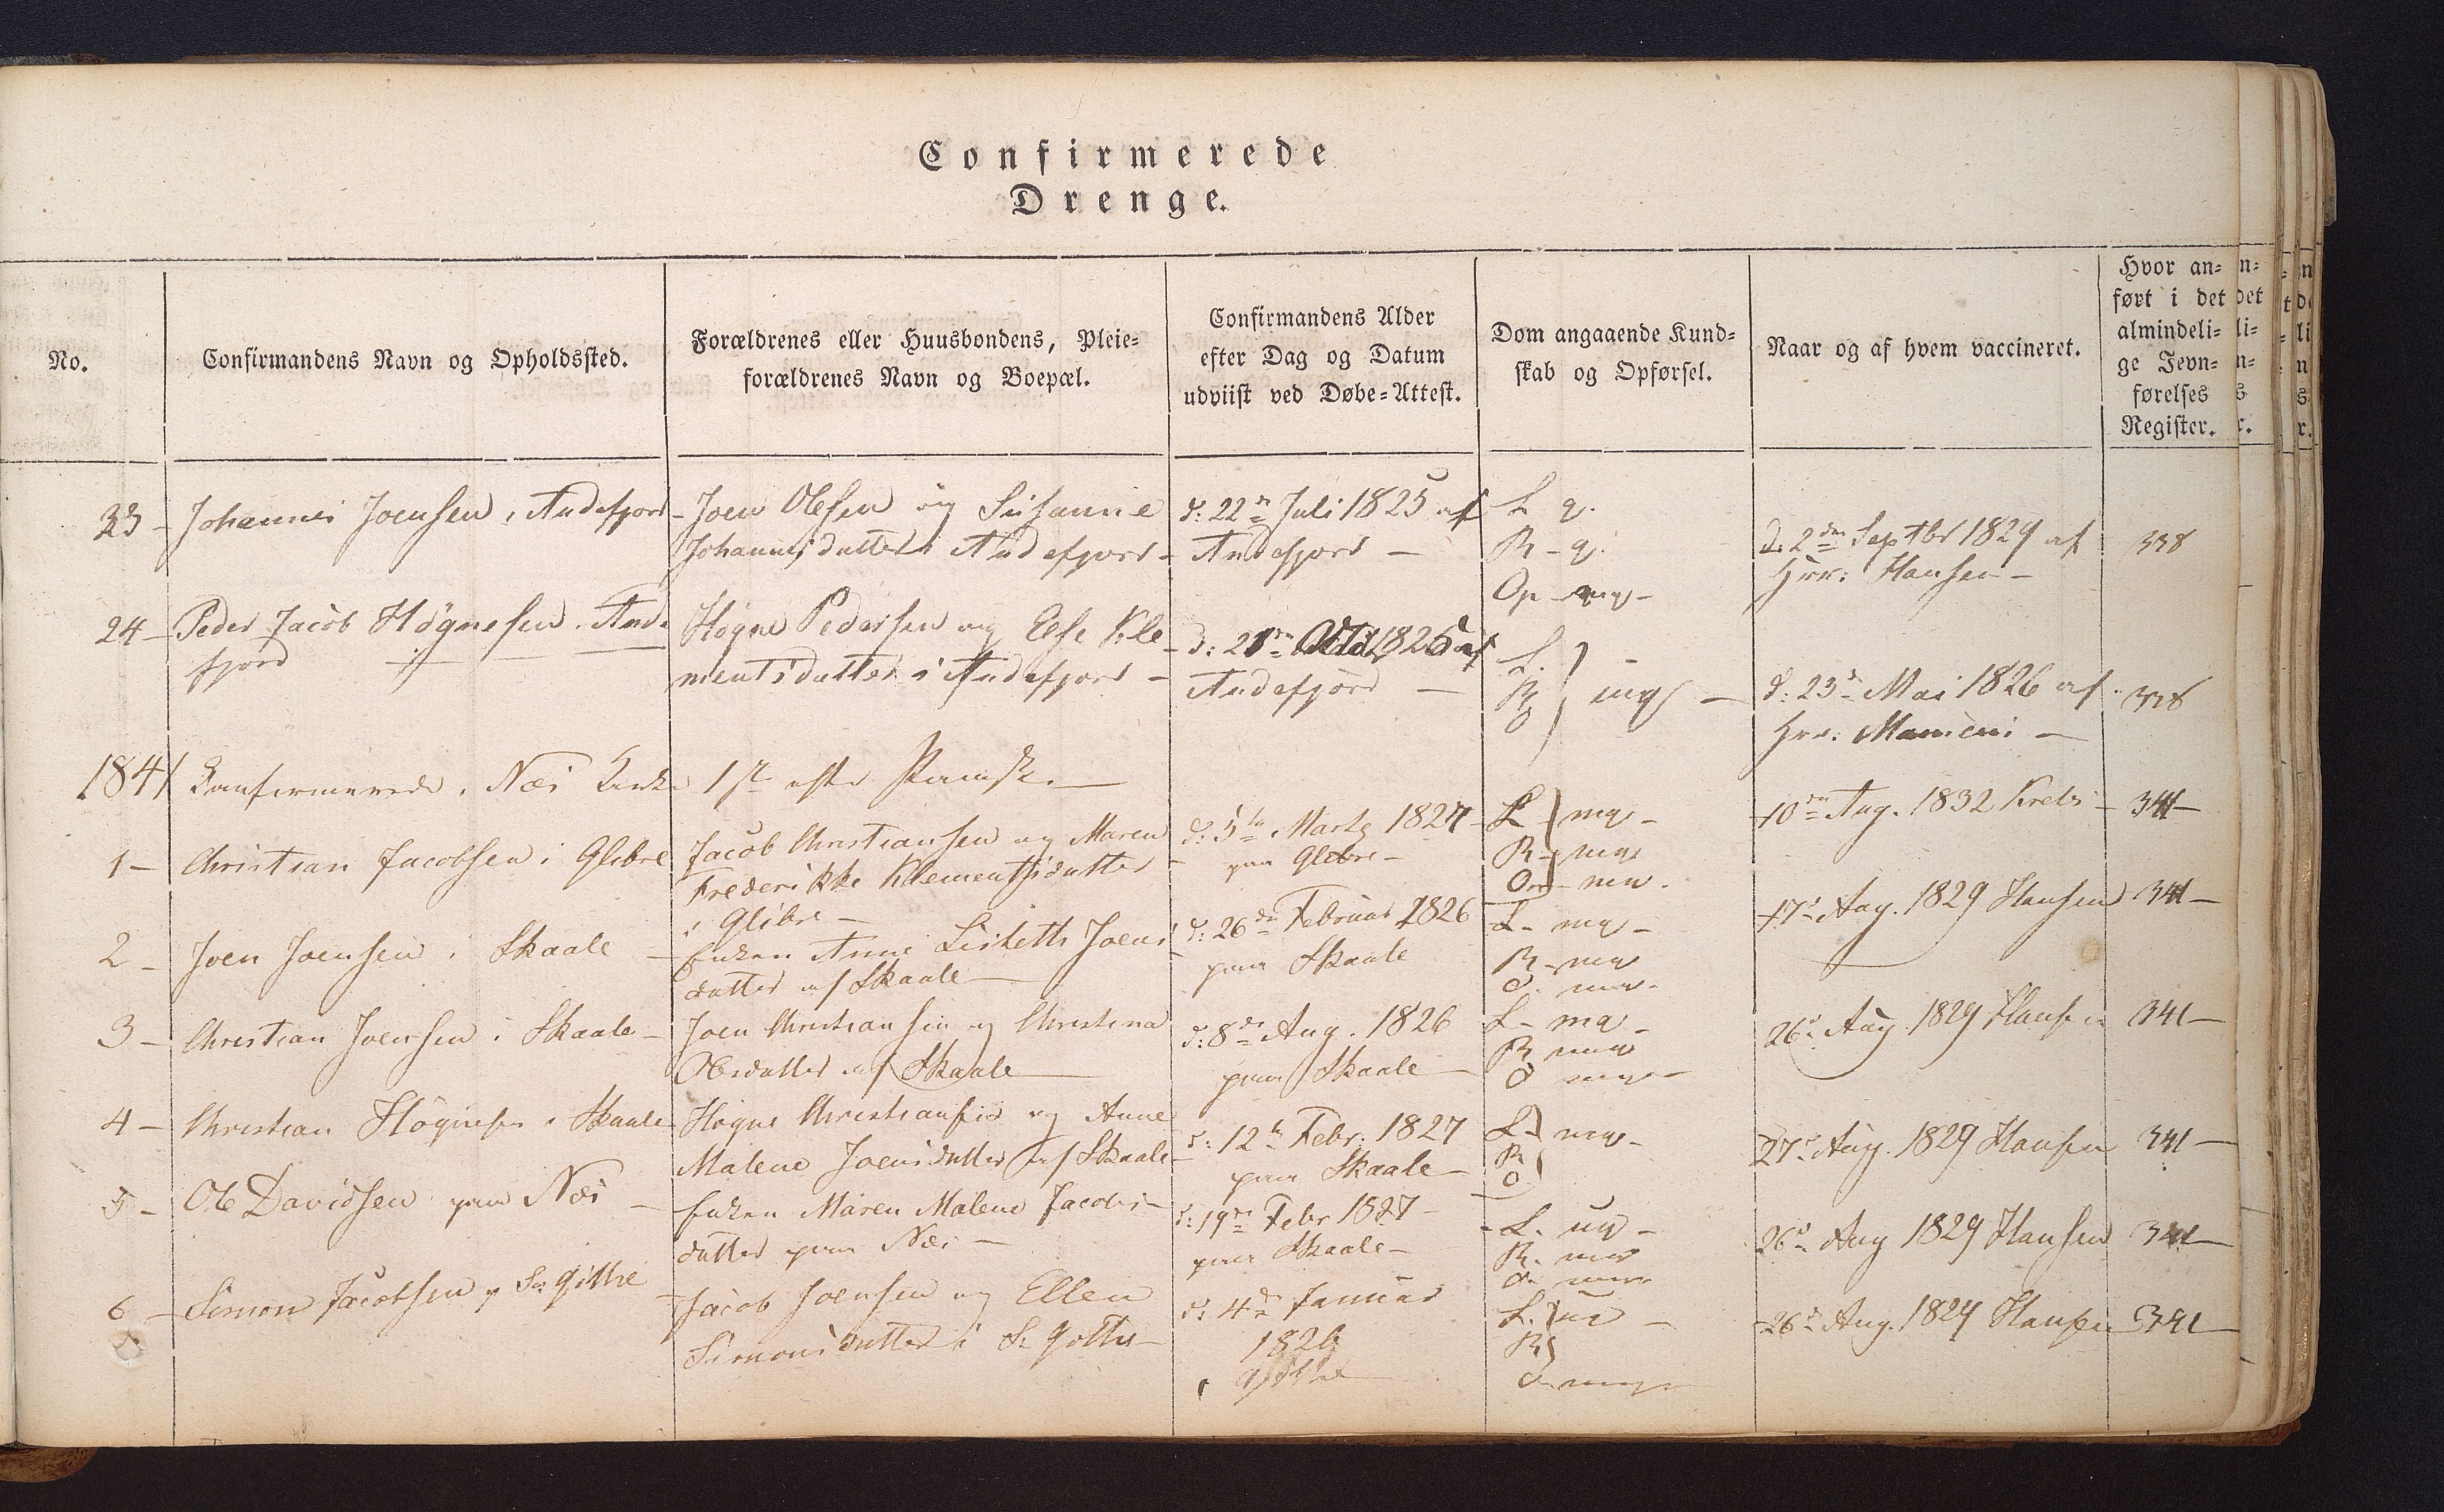 Confirmerede
Drenge.
No.
Confirmandens Navn og Opholdssted.
Forældrenes eller Huusbondens, Pleie=
forældrenes Navn og Boepæl.
Confirmandens Alder
efter Dag og Datum
udviist ved Døbe=Attest.
Dom angaaende Kund=
skab og Opførsel.
Naar og af hvem vaccineret.
Hvor an=
ført i det
almindeli=
ge Jevn=
førelses
Register.
23 - Johannes Joensen i Andefjord
Joen Olesen og Susanne
Johannisdatter i Andefjord -
d: 22n Juli 1825 af
Andefjord -
L g.
R - g.
Op - mg -
d. 2den Septbr 1829 af
Hrr: Hansen -
338
24 - Peder Jacob Høgnesen. Ande
fjord
Høgne Pedersen og Else Kle
mentsdatter i Andefjord -
d: 21n 1825 af
Andefjord -
L.
R mg -
O
d: 23d Mai 1826 af
Hrr: Manicus -
338
1841 Confirmerede i Næs Kirke 1ste efter Paaske
1 - Christian Jacobsen i Glibre
Jacob Christiansen og Maren
Frederikke Klementsdatter
i Glibre -
d: 5te Marts 1827
paa Glibre -
L mg -
R - mg
O - mg.
10de Aug. 1832 Krebs -
341 -
2 - Joen Joensen i Skaale -
Enken Anne Lisbeth Joens
datter af Skaale -
d: 26de Februar 1826
paa Skaale
L - mg -
R - mg
O. mg.
17d Aug. 1829 Hansen
341 -
3 - Christian Joensen i Skaale -
Joen Christiansen og Christina
Olesdatter af Skaale -
d: 8de Aug. 1826
paa Skaale -
L - mg -
R mg
O mg -
26d Aug 1829 Hansen
341 -
4 - Christian Høgnesen i Skaale
Høgne Christiansen og Anne
Malene Joensdatter af Skaale
d: 12te Febr: 1827
paa Skaale -
L - mg -
R
O
27d Aug. 1829 Hansen
341 -
5 - Ole Davidsen paa Næs -
Enken Maren Malene Jacobs -
datter paa Næs -
d: 19de Febr 1827 -
paa Skaale -
L. ug -
R. mg
O mg
26d Aug 1829 Hansen
341 -
6 - Simon Jacobsen Gøthe
Jacob Joensen og Ellen
Simonsdatter i Gøthe -
d: 4de Januar
1826
i Gøthe
L. ug -
R
O mg
26d Aug. 1829 Hansen
341 -